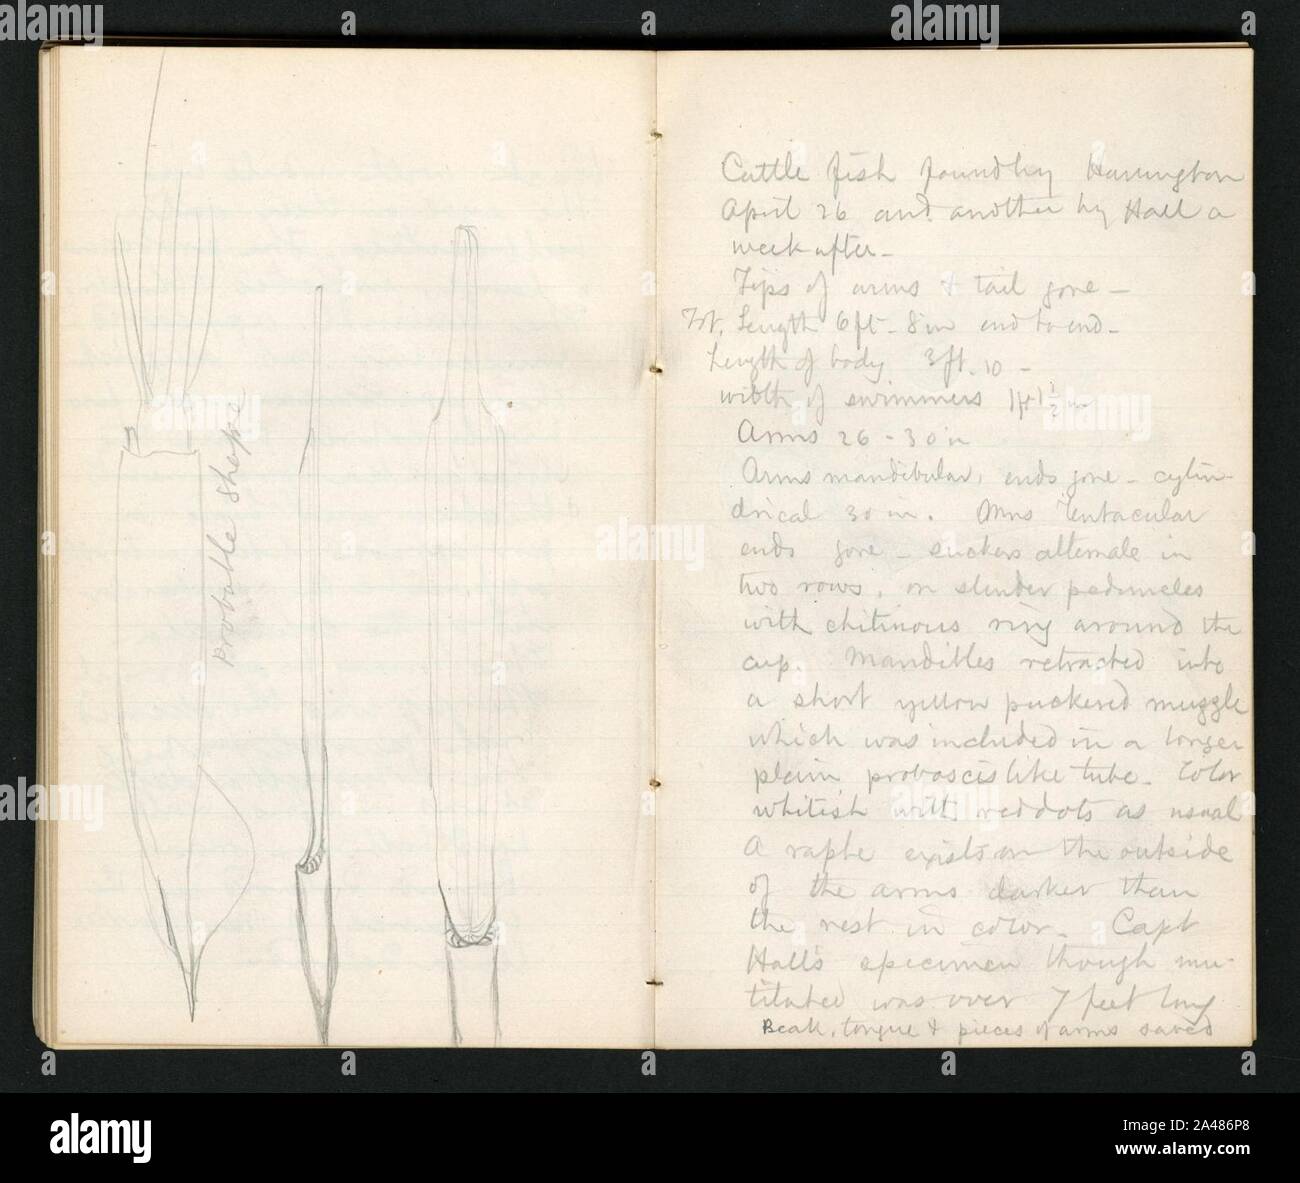 Probable Shape
Cuttle fish found by Harrington
April 26 and another by Hall a
week after -
Tips of arms & tail gone -
Tot. Length 6 ft - 8 in end to end -
Length of body 3 ft. 10 -
width of swimmers 1 ft 1 1/2 in
Arms 26 - 30 in
Arms mandibular, ends gone - cylin-
drical 30 in. Arms Tentacular
ends gone - suckers alternate in
two rows, on slender peduncles
with chitinous ring around the
cup. Mandibles retracted into
a short yellow puckered muzzle
which was included in a longer
plain proboscis like tube - Color
whitish with red dots as usual
A raphe exists on the outside
of the arms darker than
the rest in color - Capt
Hall's specimen though mu-
tilated was over 7 feet long
Beak, tongue & pieces of arms saved
alamy
Image ID: 2A486P8
www.alamy.com